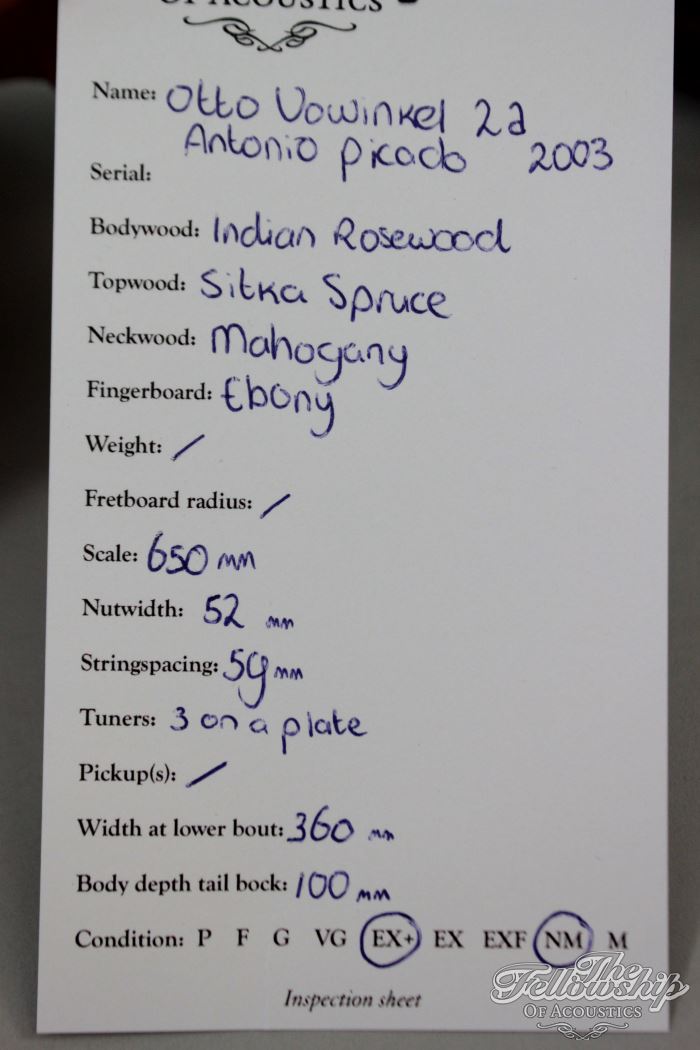 OF ACOUSTICS
Name: Otto Vowinkel 2a
Antonio Picado 2003
Serial:
Bodywood: Indian Rosewood
Topwood: Sitka Spruce
Neckwood: Mahogany
Fingerboard: Ebony
Weight: /
Fretboard radius: /
Scale: 650 mm
Nutwidth: 52 mm
Stringspacing: 59 mm
Tuners: 3 on a plate
Pickup(s): /
Width at lower bout: 360 mm
Body depth tail bock: 100 mm
Condition: P F G VG EX+ EX EXF NM M
Inspection sheet
The
Fellowship
OF ACOUSTICS